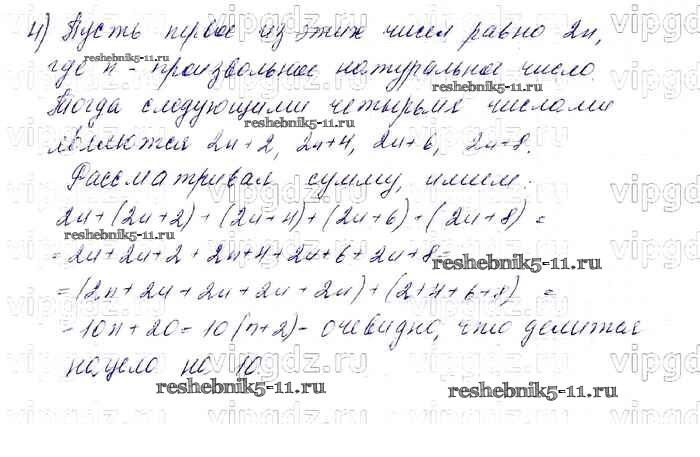 4) Пусть первое из этих чисел равно 2n,
где n - произвольное натуральное число.
reshebnik5-11.ru
reshebnik5-11.ru
Тогда следующими четырьмя числами
reshebnik5-11.ru
являются 2n+2, 2n+4, 2n+6, 2n+8.
Рассматривая сумму, имеем:
2n+(2n+2)+(2n+4)+(2n+6)+(2n+8)=
reshebnik5-11.ru
=2n+2n+2+2n+4+2n+6+2n+8=
reshebnik5-11.ru
=(2n+2n+2n+2n+2n)+(2+4+6+8)=
=10n+20=10(n+2)- очевидно, что делится
нацело на 10.
reshebnik5-11.ru
reshebnik5-11.ru
vipgdz.ru